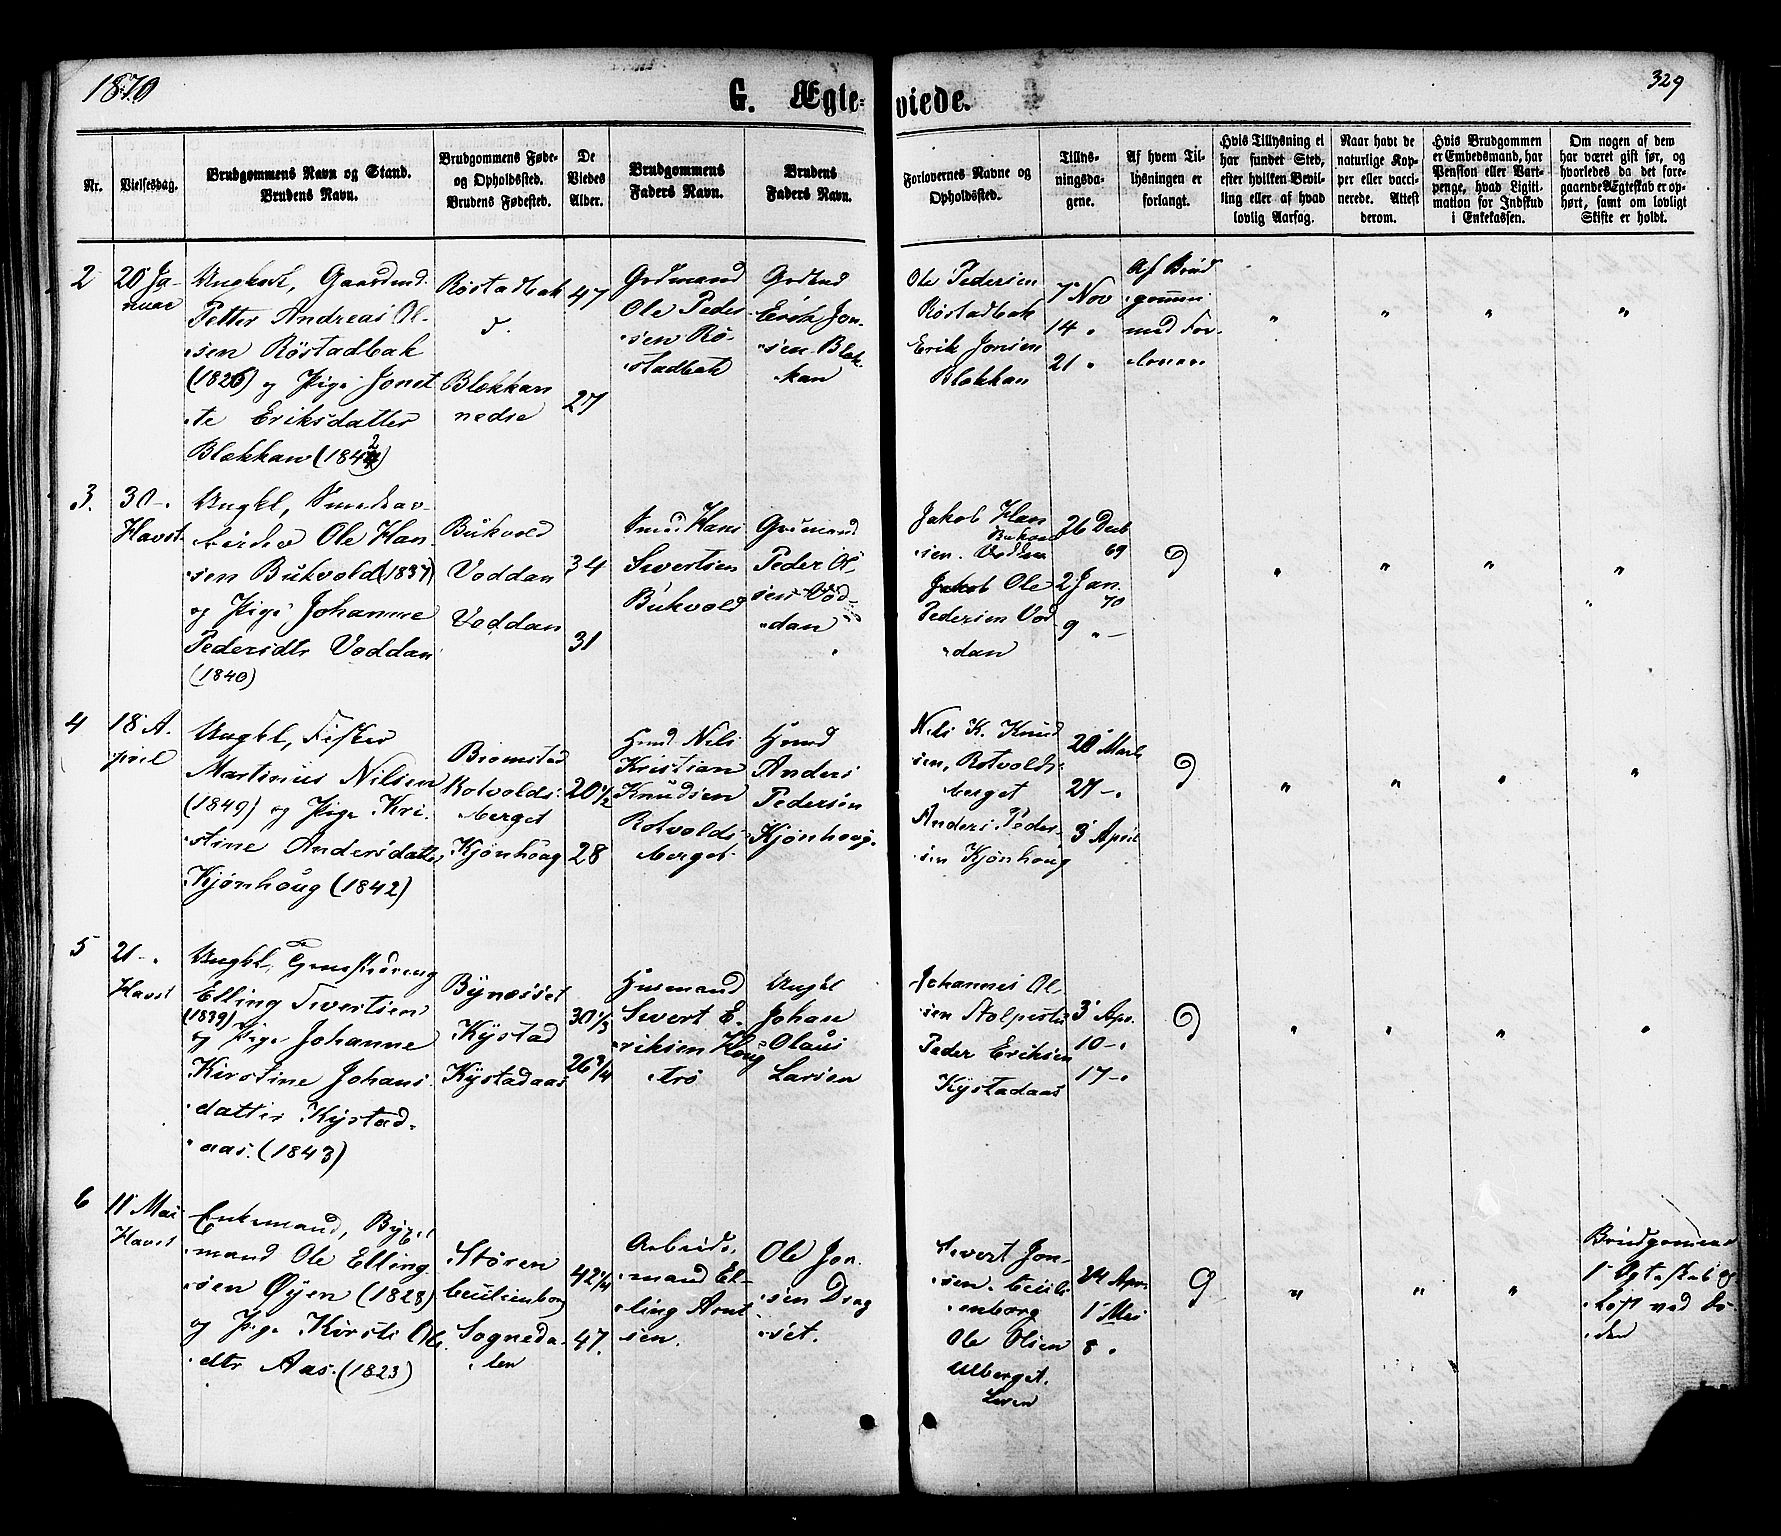 1870
329
G. Ægte-
viede.
Nr.
Vielsesdag.
Brudgommens Navn og Stand.
Brudens Navn.
Brudgommens Føde-
og Opholdssted.
Brudens Fødested.
De
Viedes
Alder.
Brudgommens
Faders Navn.
Brudens
Faders Navn.
Forlovernes Navne og
Opholdssted.
Tillys-
ningsda-
gene.
Af hvem Til-
lysningen er
forlangt.
Hvis Tillysning ei
har fundet Sted,
efter hvilken Bevil-
ling eller af hvad
lovlig Aarsag.
Naar havt de
naturlige Kop-
per eller vacci-
nerede. Attest
derom.
Hvis Brudgommen
er Embedsmand, har
Pension eller Vart-
penge, hvad Ligiti-
mation for Indskud
i Enkekassen.
Om nogen af dem
har været gift før, og
hvorledes da det fore-
gaaende Ægteskab er op-
hørt, samt om lovligt
Skifte er holdt.
2
20 Ja-
nuar
Ungkarl, Gaardmd.
Petter Andreas Ol-
sen Röstadbak
(1826) og Pige Jonet
te Eriksdatter
Blækkan (1842)
Röstadbak
d.
Blækkan
nedre
47
27
Grdmand
Ole Peder
sen Rö-
stadbak
Erik Jon-
sen Blæk
kan
Ole Pedersen
Röstadbak
Erik Jonsen
Blækkan
7 Nov
14 "
21 "
Af Brud
gommen
med For-
lovere
" " " "
3.
30 -
Havst
Ungkl, Smedear-
beider Ole Han-
sen Bukvold (1837)
og Pige Johanne
Pedersdtr Voddan
(1840)
Bukvold
Voddan
Voddan
34
31
Smed Hans
Sivertsen
Bukvold
Peder Ol
sen Vod-
dan
Jakob Han
sen
Ole
Pedersen Vod
dan
26 Decb
69
2 Jan
70
9 " -
" " " "
4
18 A.
pril
Ungkl, Fisker
Martinus Nilsen
(1849) og Pige Kri-
stine Andersdatter
Kjönhoug (1842)
Rotvolds-
berget
Kjönhoug
20 1/2
28
Hmd Nils
Kristian
Knudsen
Rotvolds
berget
Hmd
Anders
Pedersen
Kjönhoug.
Nils K. Knud
sen, Rotvolds
berget
Anders Peder-
sen Kjönhoug
20 Marts
27 -
3 April
" " " "
5
21 -
Havst
Ungkl,
Elling Sivertsen
(1839)
og Pige Johanne
Kirstine Johans
datter Kystad-
aas. (1843)
Bynæsset
Kystad
Kystadaas
30 1/3
26 3/4
Husmand
Sivert E-
riksen Houg
trö
Ungkl
Johan
Olaus
Larsen
Johannes Ol
sen
Peder Eriksen
Kystadaas
3 Apr.
10 -
17 -
" " " "
6
11 Mai
Havst
Enkemand, Byg-
mand Ole Elling
sen Öyen (1828)
og Pige Kirsti Ols
dtr Aas. (1823)
Stören
Sogneda-
len
42 1/4
47.
Arbeids-
mand El-
ling Arnt
sen.
Ole Jon-
sen Drag
set.
Sivert Jon-
sen
enborg
Ole Olsen
Ulberget.
24 Apr.
1 Mai
8 "
" " "
Brudgommens
1 Egteskab op-
löst ved Dö-
den